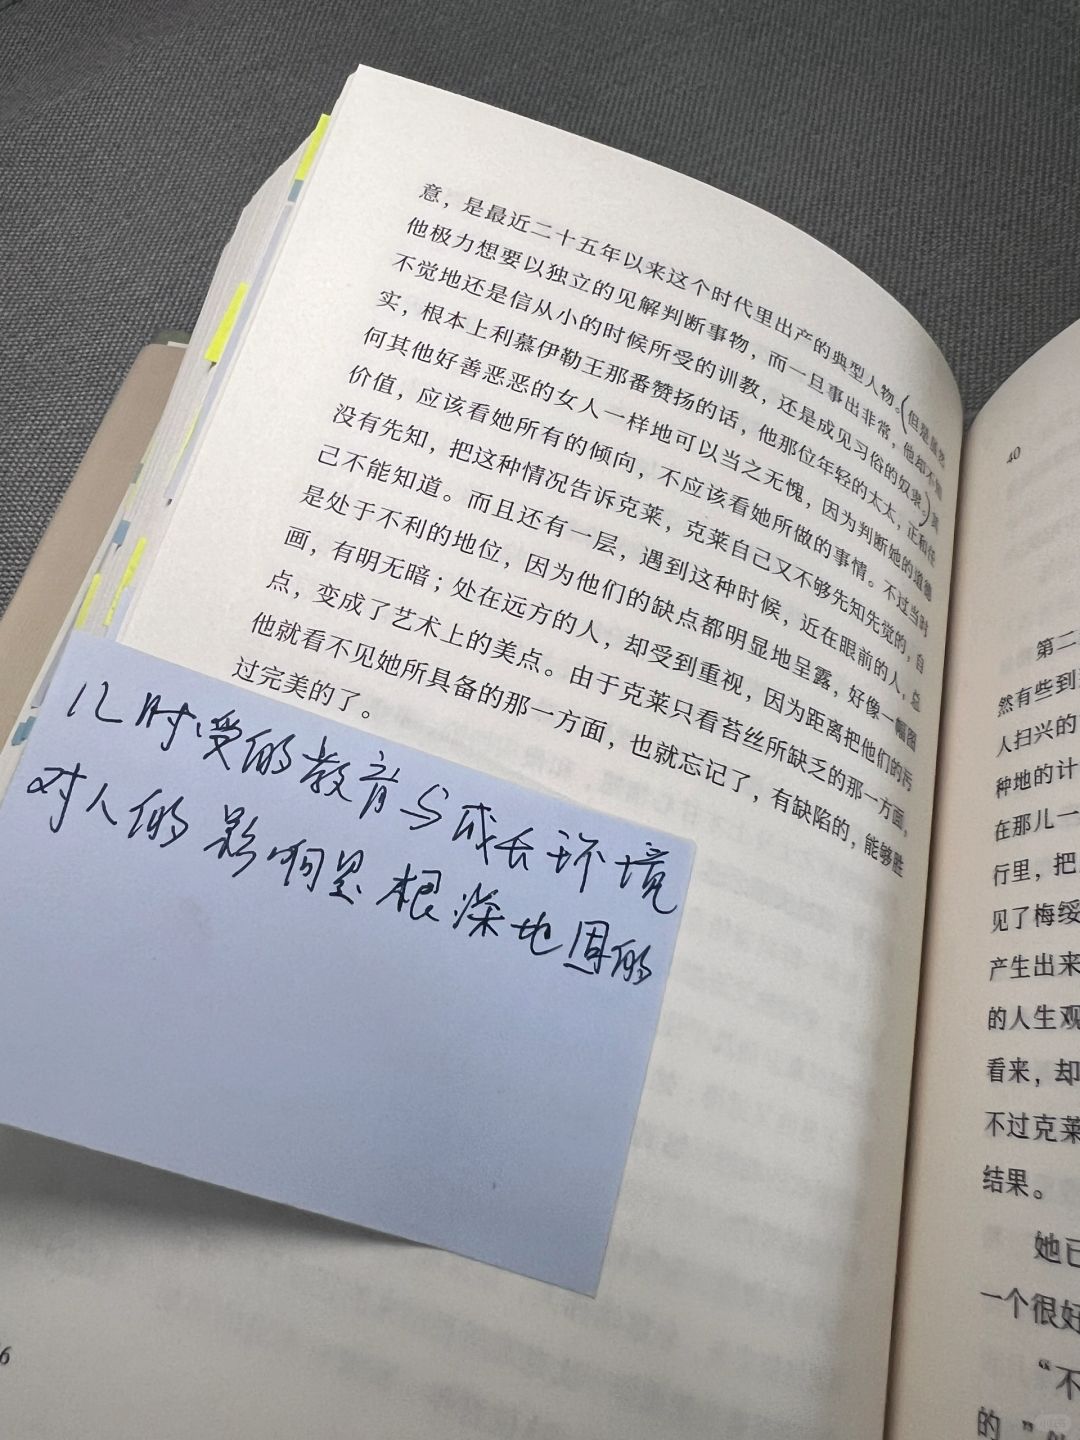 意，是最近二十五年以来这个时代里出产的典型人物。（但是虽然
他极力想要以独立的见解判断事物，而一旦事出非常，他却不知
不觉地还是信从小的时候所受的训教，还是成见习俗的奴隶。）其
实，根本上利慕伊勒王那番赞扬的话，他那位年轻的太太，正和任
何其他好善恶恶的女人一样地可以当之无愧，因为判断她的道德
价值，应该看她所有的倾向，不应该看她所做的事情。不过当时
没有先知，把这种情况告诉克莱，克莱自己又不够先知先觉的，自
己不能知道。而且还有一层，遇到这种时候，近在眼前的人，总
是处于不利的地位，因为他们的缺点都明显地呈露，好像一幅图
画，有明无暗；处在远方的人，却受到重视，因为距离把他们的污
点，变成了艺术上的美点。由于克莱只看苔丝所缺乏的那一方面，
他就看不见她所具备的那一方面，也就忘记了，有缺陷的，能够胜
过完美的了。
儿时受的教育与成长环境
对人的影响是根深地固的
6
40
第二
然有些到
人扫兴的
种地的计
在那儿一
行里，把
见了梅绥
产生出来
的人生观
看来，却
不过克莱
结果。
她已
一个很好
“不
的”